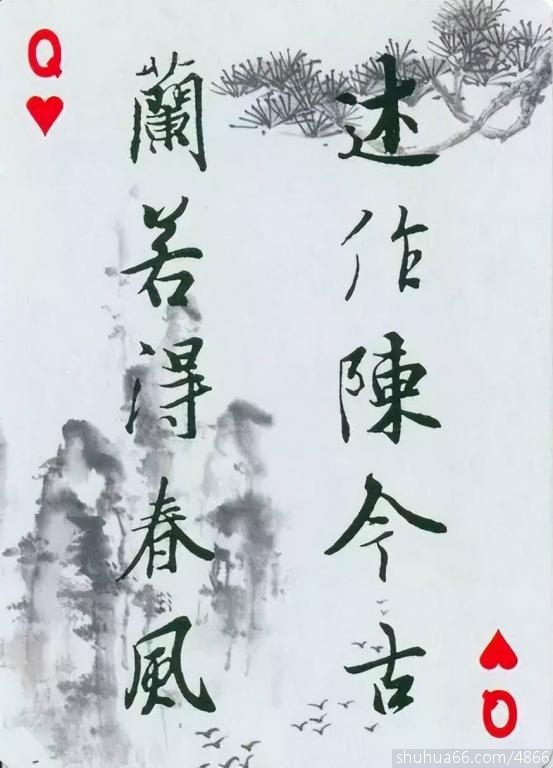 Q
述作陳今古
蘭若得春風
Q
shuhua66.com/4866